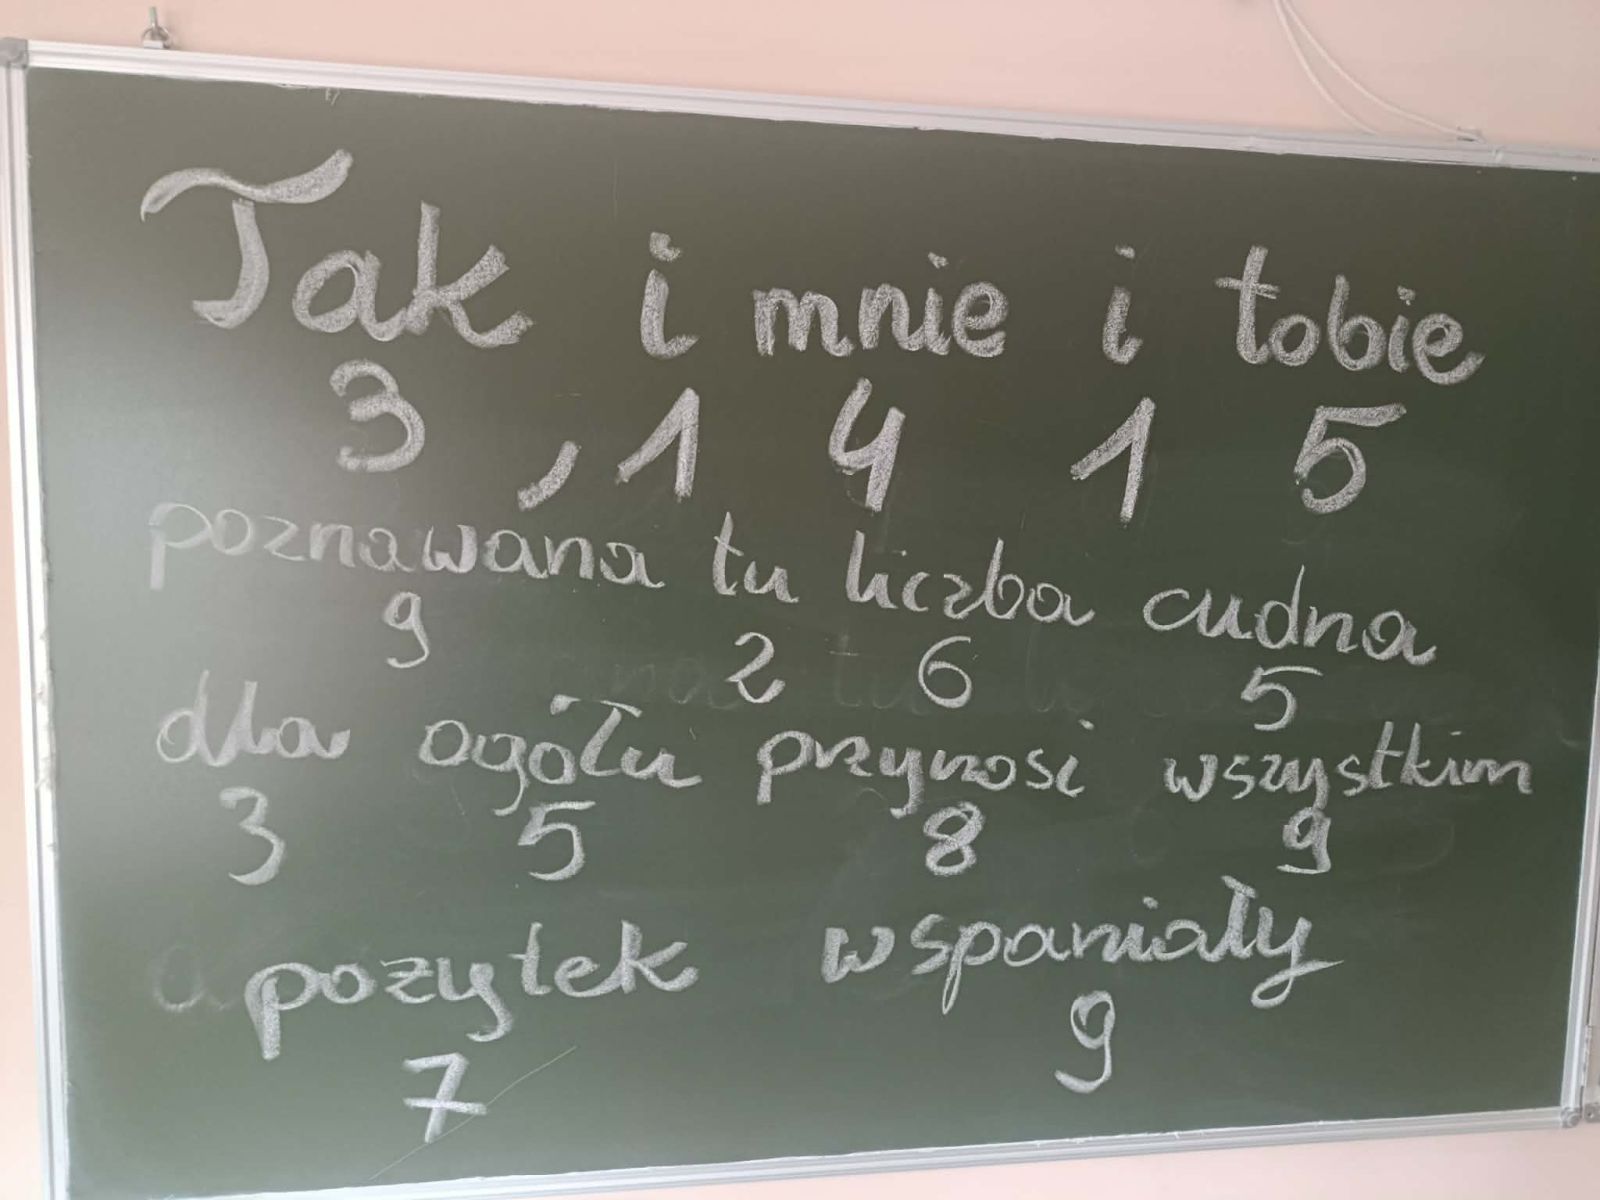 Tak i mnie i tobie
3 , 1 4 1 5
poznawana tu liczba cudna
9 2 6 5
dla ogółu przynosi wszystkim
3 5 8 9
pozytek wspaniały
7 9